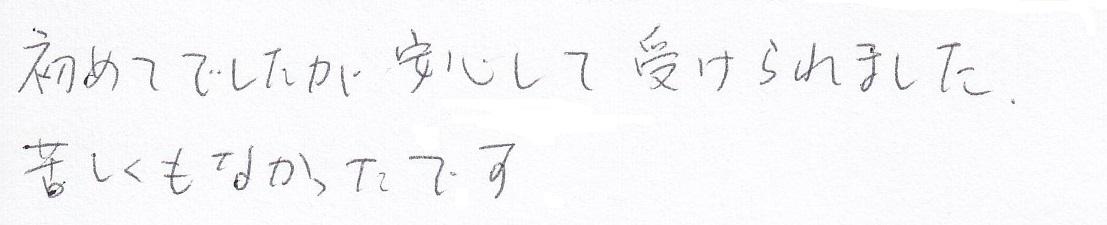 初めてでしたが安心して受けられました.
苦しくもなかったです